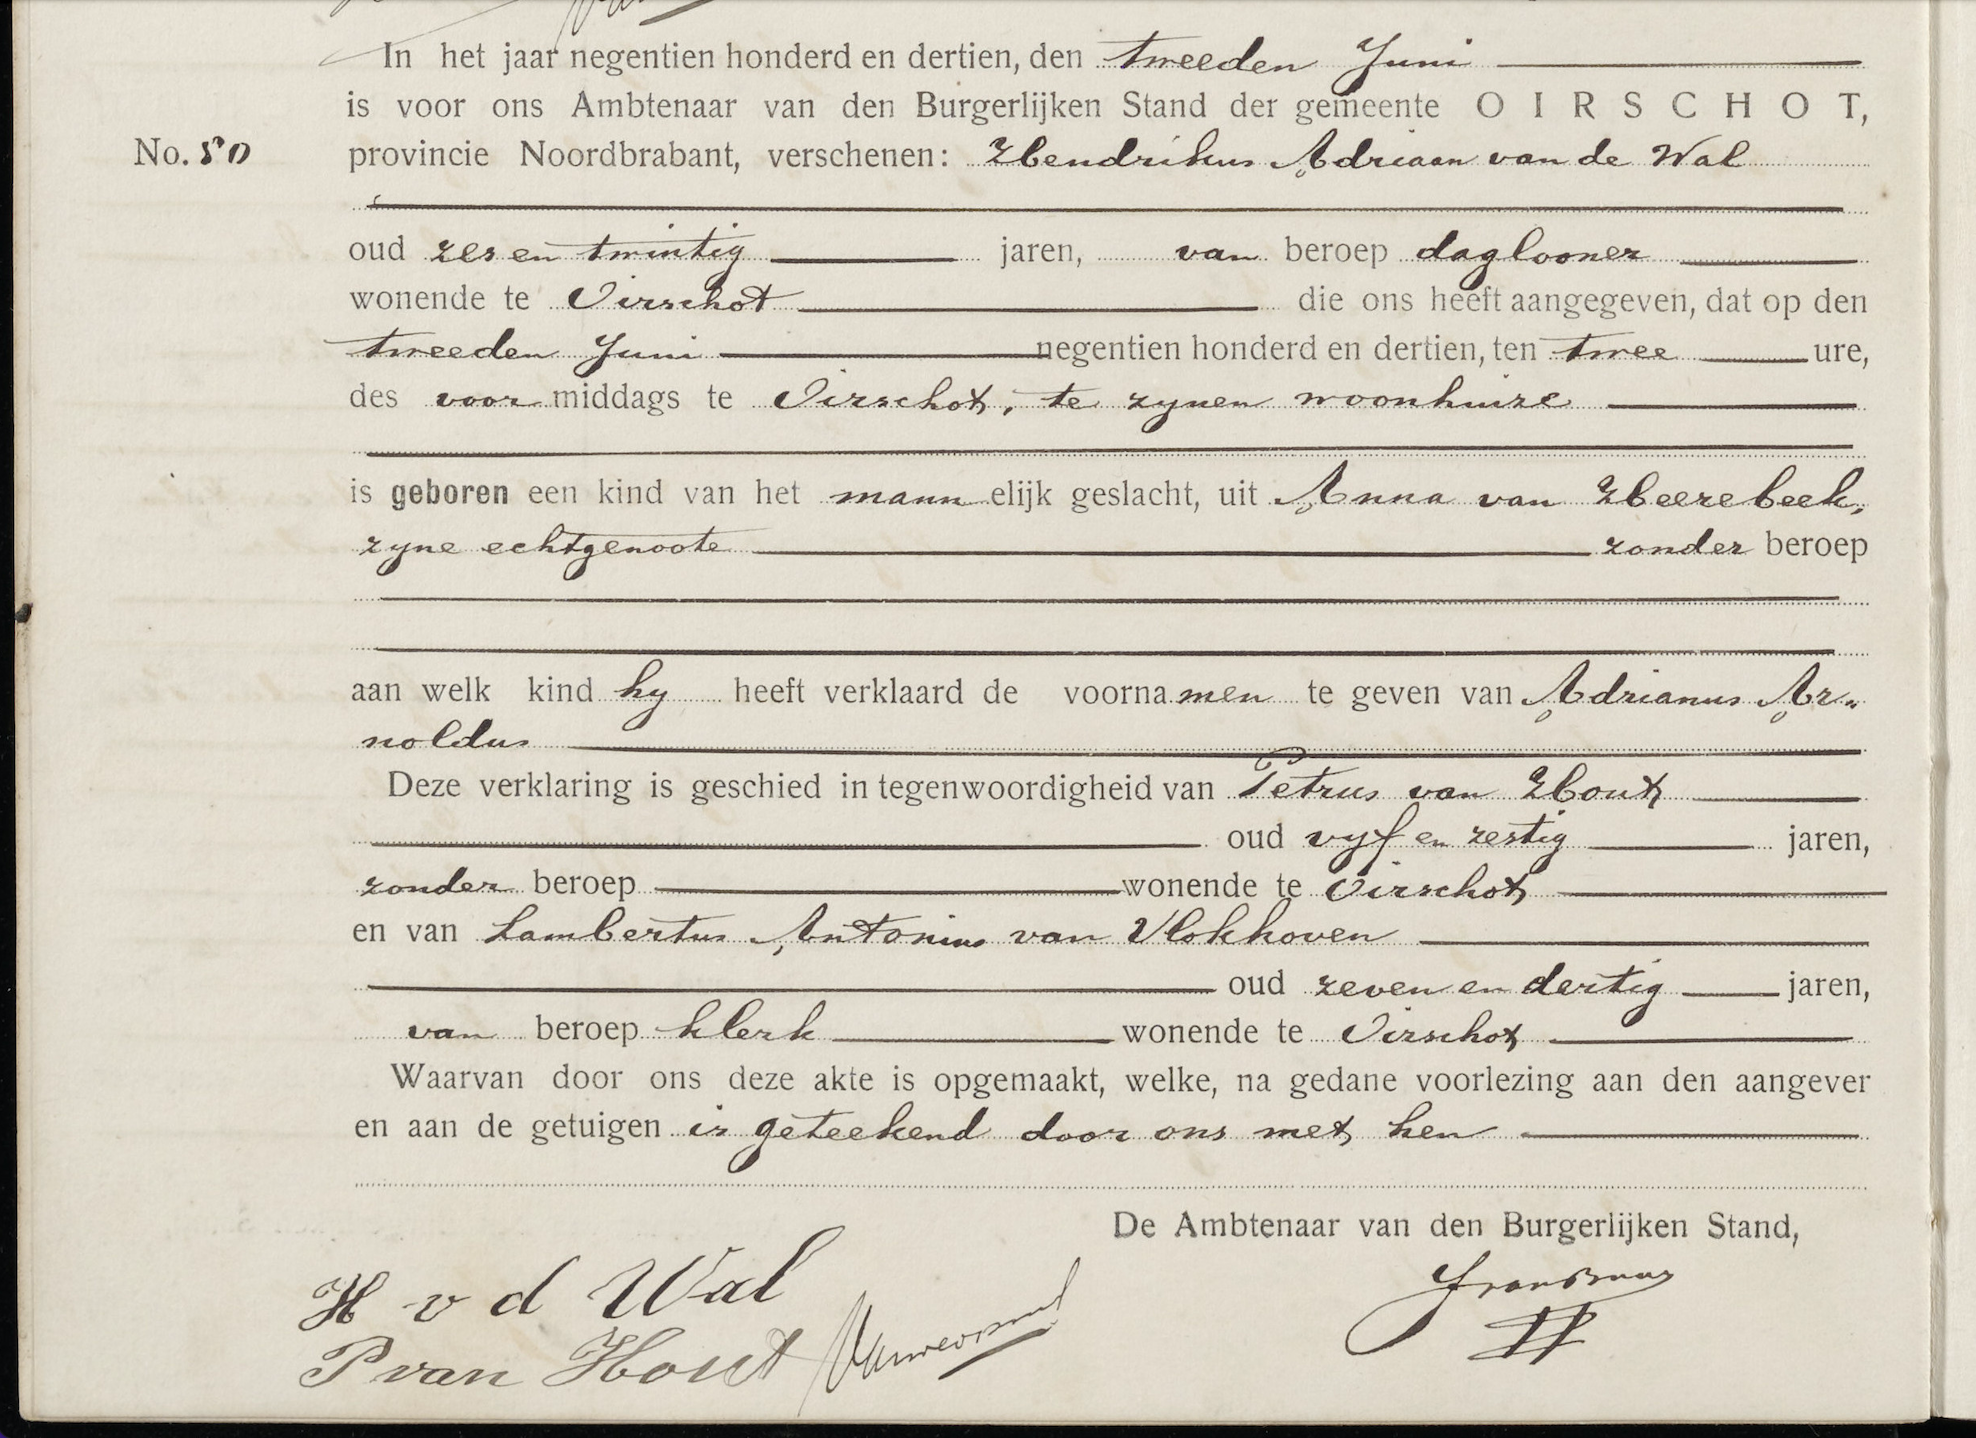 In het jaar negentien honderd en dertien, den tweeden Juni
is voor ons Ambtenaar van den Burgerlijken Stand der gemeente OIRSCHOT,
No. 50 provincie Noordbrabant, verschenen: Hendrikus Adriaan van de Wal
oud zes en twintig jaren, van beroep daglooner
wonende te Oirschot die ons heeft aangegeven, dat op den
tweeden Juni negentien honderd en dertien, ten twee ure,
des voormiddags te Oirschot, te zynen woonhuize
is geboren een kind van het mannelijk geslacht, uit Anna van Heerebeek,
zyne echtgenoote zonder beroep
aan welk kind hy heeft verklaard de voornamen te geven van Adrianus Ar„
noldus
Deze verklaring is geschied in tegenwoordigheid van Petrus van Hout
oud vyf en zestig jaren,
zonder beroep wonende te Oirschot
en van Lambertus Antonius van Vlokhoven
oud zeven en dertig jaren,
van beroep klerk wonende te Oirschot
Waarvan door ons deze akte is opgemaakt, welke, na gedane voorlezing aan den aangever
en aan de getuigen is geteekend door ons met hen
De Ambtenaar van den Burgerlijken Stand,
H v d Wal
P van Hout